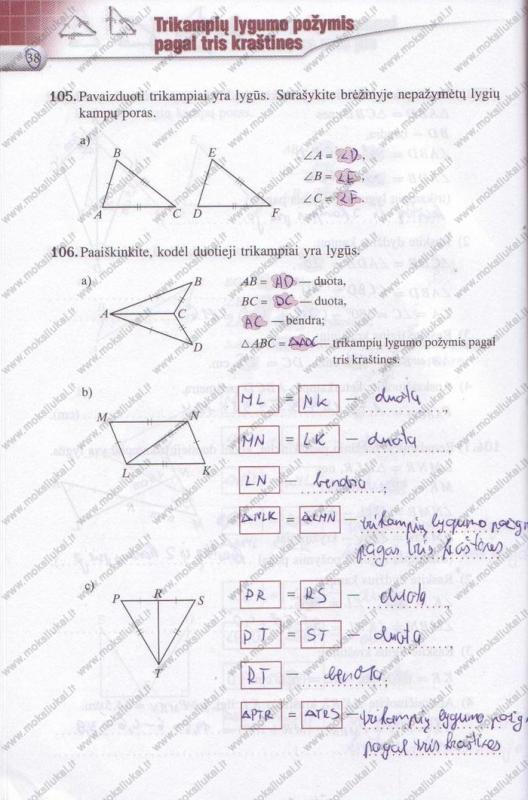 Trikampių lygumo požymis
pagal tris kraštines
38
105. Pavaizduoti trikampiai yra lygūs. Surašykite brėžinyje nepažymėtų lygių
kampų poras.
a)
B E
A C D F
∠A = ∠D,
∠B = ∠E,
∠C = ∠F.
106. Paaiškinkite, kodėl duotieji trikampiai yra lygūs.
a)
B
A C
D
AB = AD — duota,
BC = DC — duota,
AC — bendra;
△ABC = △ADC — trikampių lygumo požymis pagal
tris kraštines.
b)
M N
L K
ML = NK — duota,
MN = LK — duota,
LN — bendra;
△NLK = △LMN — trikampių lygumo
pagal tris kraštines
c)
P R S
T
PR = RS — duota,
PT = ST — duota,
RT —
△PTR = △TRS — trikampių lygumo
pagal tris kraštines
www.moksliukai.lt